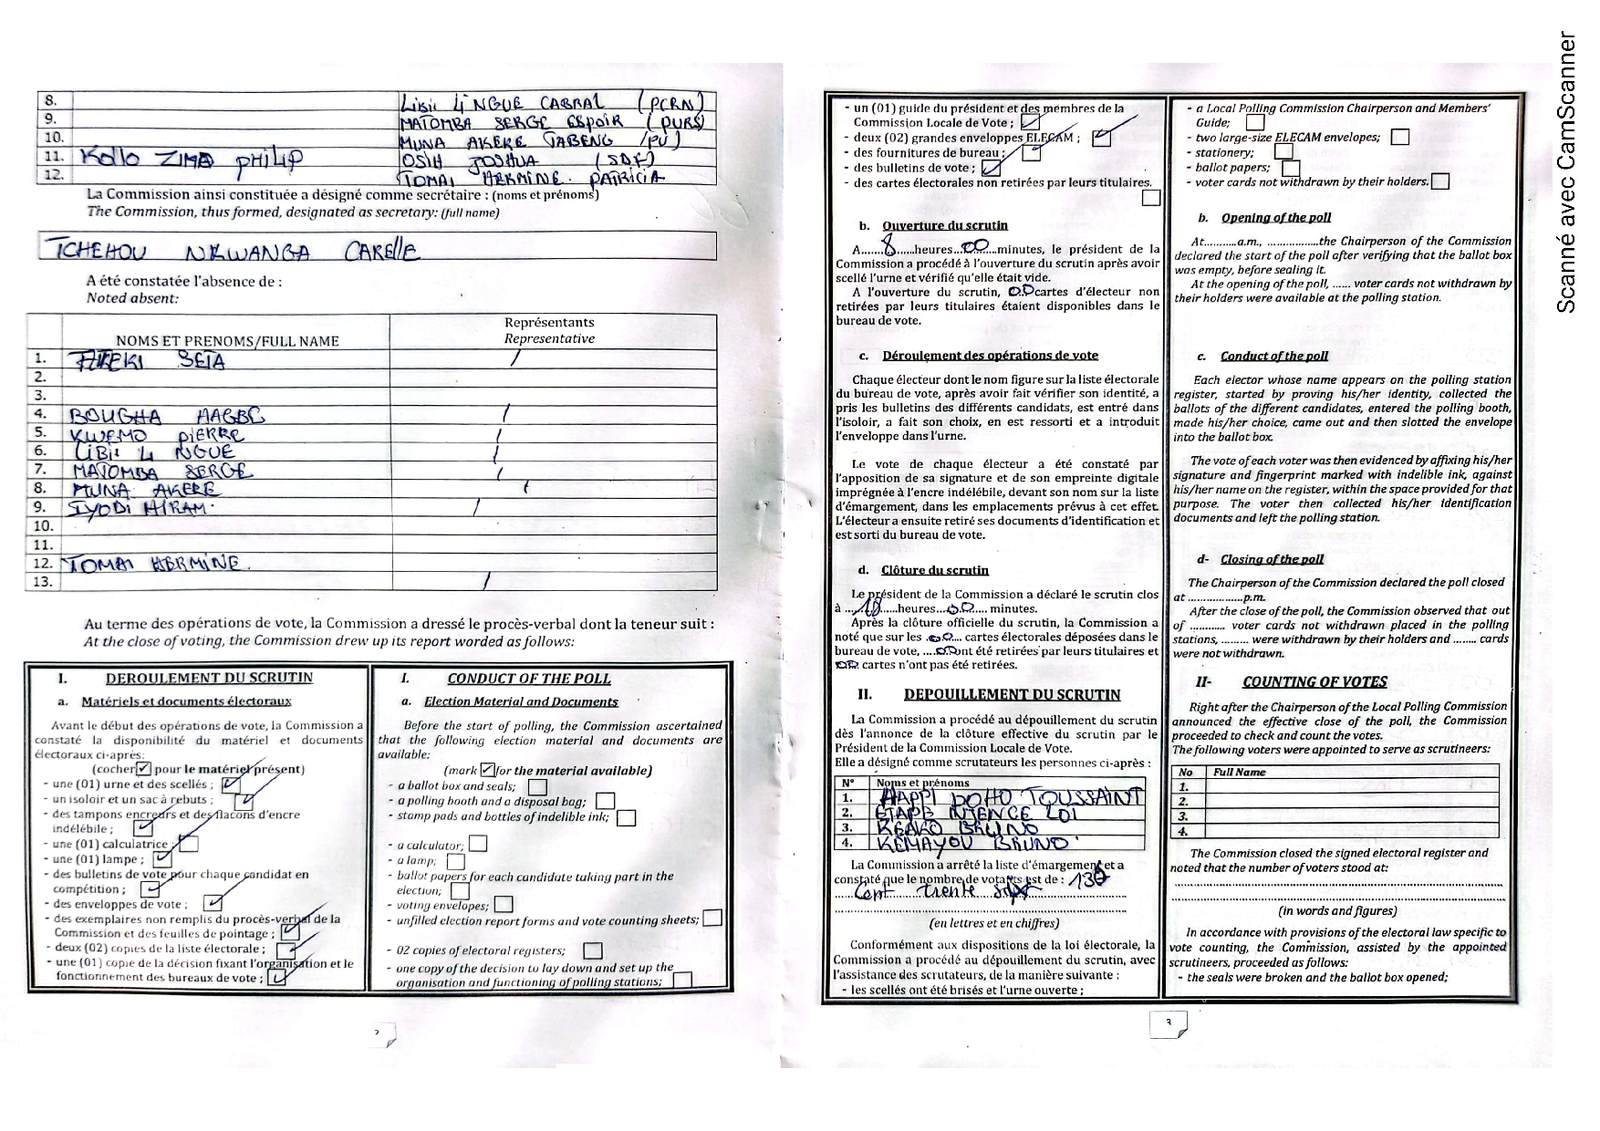 8. LIBII LI NGUE CABRAL (PCRN)
9. MATOMBA SERGE ESPOIR (PURS)
10. MUNA AKERE TABENG (PU)
11. KOLLO ZIMA PHILIP OSIH JOSHUA (SDF)
12. TOMAI HERMINE PATRICIA
La Commission ainsi constituée a désigné comme secrétaire : (noms et prénoms)
The Commission, thus formed, designated as secretary: (full name)
TCHEHOU NKWANGA CARELLE
A été constatée l'absence de :
Noted absent:
NOMS ET PRENOMS/FULL NAME
Représentants
Representative
1. SEIA /
2.
3.
4. BOUGHA /
5. KWEMO PIERRE /
6. LIBII LI NGUE /
7. MATOMBA SERGE /
8. MUNA AKERE /
9. IYODI HIRAM. /
10.
11.
12. TOMAI HERMINE.
13. /
Au terme des opérations de vote, la Commission a dressé le procès-verbal dont la teneur suit :
At the close of voting, the Commission drew up its report worded as follows:
I. DEROULEMENT DU SCRUTIN
a. Matériels et documents électoraux
Avant le début des opérations de vote, la Commission a
constaté la disponibilité du matériel et documents
électoraux ci-après:
(cocher ✓ pour le matériel présent)
- une (01) urne et des scellés ; ✓
- un isoloir et un sac à rebuts ; ✓
- des tampons encreurs et des flacons d'encre
indélébile ; ✓
- une (01) calculatrice ✓
- une (01) lampe ; ✓
- des bulletins de vote pour chaque candidat en
compétition ; ✓
- des enveloppes de vote ; ✓
- des exemplaires non remplis du procès-verbal de la
Commission et des feuilles de pointage ; ✓
- deux (02) copies de la liste électorale ; ✓
- une (01) copie de la décision fixant l'organisation et le
fonctionnement des bureaux de vote ; ✓
I. CONDUCT OF THE POLL
a. Election Material and Documents
Before the start of polling, the Commission ascertained
that the following election material and documents are
available:
(mark ✓ for the material available)
- a ballot box and seals;
- a polling booth and a disposal bag;
- stamp pads and bottles of indelible ink;
- a calculator;
- a lamp;
- ballot papers for each candidate taking part in the
election;
- voting envelopes;
- unfilled election report forms and vote counting sheets;
- 02 copies of electoral registers;
- one copy of the decision to lay down and set up the
organisation and functioning of polling stations;
2
- un (01) guide du président et des membres de la
Commission Locale de Vote ; ✓
- deux (02) grandes enveloppes ELECAM ; ✓
- des fournitures de bureau ; ✓
- des bulletins de vote ; ✓
- des cartes électorales non retirées par leurs titulaires.
b. Ouverture du scrutin
A.......8.....heures...00...minutes, le président de la
Commission a procédé à l'ouverture du scrutin après avoir
scellé l'urne et vérifié qu'elle était vide.
A l'ouverture du scrutin, 00 cartes d'électeur non
retirées par leurs titulaires étaient disponibles dans le
bureau de vote.
c. Déroulement des opérations de vote
Chaque électeur dont le nom figure sur la liste électorale
du bureau de vote, après avoir fait vérifier son identité, a
pris les bulletins des différents candidats, est entré dans
l'isoloir, a fait son choix, en est ressorti et a introduit
l'enveloppe dans l'urne.
Le vote de chaque électeur a été constaté par
l'apposition de sa signature et de son empreinte digitale
imprégnée à l'encre indélébile, devant son nom sur la liste
d'émargement, dans les emplacements prévus à cet effet.
L'électeur a ensuite retiré ses documents d'identification et
est sorti du bureau de vote.
d. Clôture du scrutin
Le président de la Commission a déclaré le scrutin clos
à ...18.....heures...00.... minutes.
Après la clôture officielle du scrutin, la Commission a
noté que sur les .00... cartes électorales déposées dans le
bureau de vote, ....00 ont été retirées par leurs titulaires et
00 cartes n'ont pas été retirées.
II. DEPOUILLEMENT DU SCRUTIN
La Commission a procédé au dépouillement du scrutin
dès l'annonce de la clôture effective du scrutin par le
Président de la Commission Locale de Vote.
Elle a désigné comme scrutateurs les personnes ci-après :
N° Noms et prénoms
1. HAPPI DOHO TOUSSAINT
2. LOI
3. BRUNO
4. KEMAYOU BRUNO
La Commission a arrêté la liste d'émargement et a
constaté que le nombre de votants est de :
Cent trente
(en lettres et en chiffres)
Conformément aux dispositions de la loi électorale, la
Commission a procédé au dépouillement du scrutin, avec
l'assistance des scrutateurs, de la manière suivante :
- les scellés ont été brisés et l'urne ouverte ;
- a Local Polling Commission Chairperson and Members'
Guide;
- two large-size ELECAM envelopes;
- stationery;
- ballot papers;
- voter cards not withdrawn by their holders.
b. Opening of the poll
At..........a.m., ................the Chairperson of the Commission
declared the start of the poll after verifying that the ballot box
was empty, before sealing it.
At the opening of the poll, ...... voter cards not withdrawn by
their holders were available at the polling station.
c. Conduct of the poll
Each elector whose name appears on the polling station
register, started by proving his/her identity, collected the
ballots of the different candidates, entered the polling booth,
made his/her choice, came out and then slotted the envelope
into the ballot box.
The vote of each voter was then evidenced by affixing his/her
signature and fingerprint marked with indelible ink, against
his/her name on the register, within the space provided for that
purpose. The voter then collected his/her identification
documents and left the polling station.
d- Closing of the poll
The Chairperson of the Commission declared the poll closed
at .................p.m.
After the close of the poll, the Commission observed that out
of .......... voter cards not withdrawn placed in the polling
stations, ......... were withdrawn by their holders and ........ cards
were not withdrawn.
II- COUNTING OF VOTES
Right after the Chairperson of the Local Polling Commission
announced the effective close of the poll, the Commission
proceeded to check and count the votes.
The following voters were appointed to serve as scrutineers:
No Full Name
1.
2.
3.
4.
The Commission closed the signed electoral register and
noted that the number of voters stood at:
(in words and figures)
In accordance with provisions of the electoral law specific to
vote counting, the Commission, assisted by the appointed
scrutineers, proceeded as follows:
- the seals were broken and the ballot box opened;
3
Scanné avec CamScanner